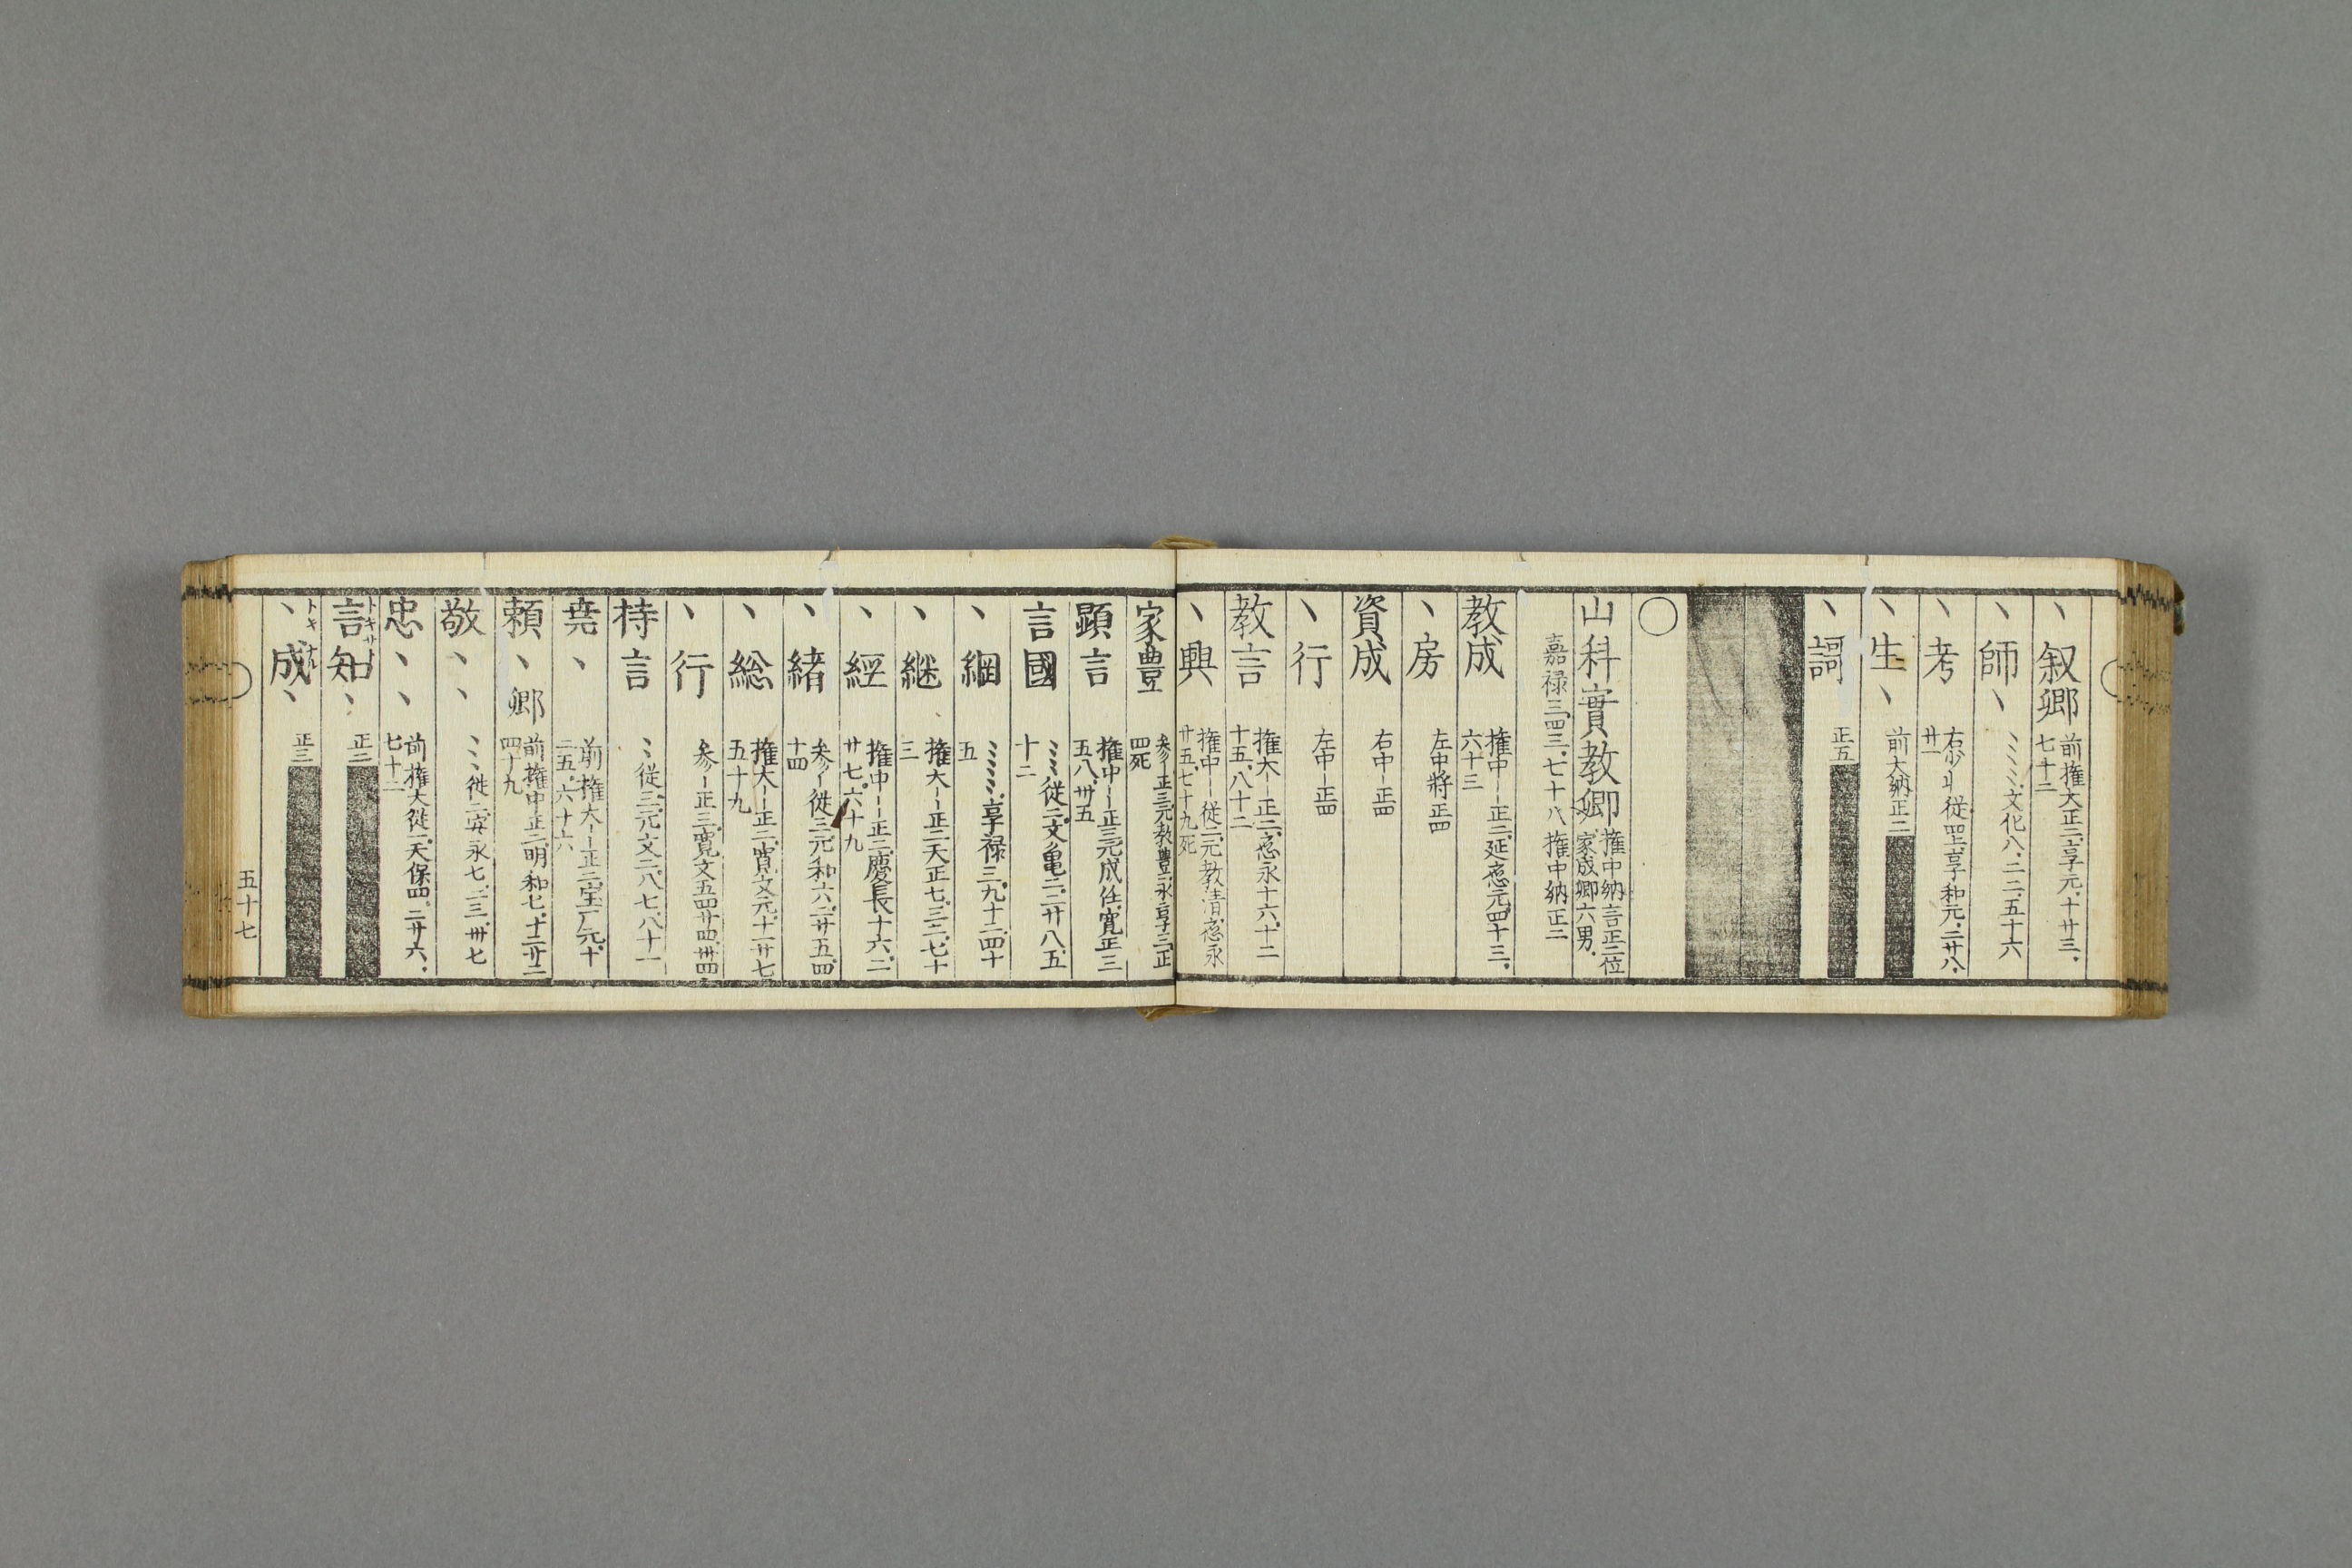 丶叙卿 前権大正二、享元、十廿三、
七十三
丶師丶 ミミミ、文化八、二二、五十六
丶考 右少丬従四上享和元、二廿八、
廿一
丶生丶 前大納正二
丶謌 正五
〇
山科實教卿 権中納言正二位
家成卿六男、
嘉禄三、四三、七十八、権中納正二
教成 権中ー正二、延応元、四十三、
六十三
丶房 左中將正四
資成 右中ー正四
丶行 左中ー正四
教言 権大ー正二、応永十六、十二
十五、八十二
丶興 権中ー従二、元教清、応永
廿五、七十九死
家豊 参ー正三、元教豊、永享三、正
四死
顕言 権中ー正三、元成任、寛正三
五八、卅五
言國 ミミ従二、文亀三、二廿八、五
十二
丶綱 ミミミ、享禄三、九、十二、四十
五
丶継 権大ー正二、天正七、三二、七十
三
丶經 権中ー正二、慶長十六、二
廿七、六十九
丶緒 参ー従三、元和六、二廿五、四
十四
丶総 権大ー正二、寛文元、十一廿七
五十九
丶行 参ー正三、寛文五、四廿四、卅四
持言 ミ従三、元文二、八七、八十一
堯丶 前権大ー正二、宝厂元、十
二五、六十六
頼丶卿 前権中正二、明和七、十二廿二
四十九
敬丶丶 ミミ従二、安永七、二三、卅七
忠丶丶 前権大従一、天保四、二廿六、
七十二
言知丶 正二
丶成丶 正三
五十七